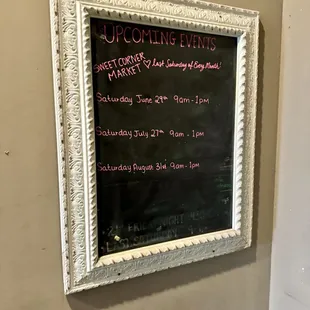 UPCOMING EVENTS
SWEET CORNER MARKET ♡ last Saturday of Every Month!
Saturday June 29th 9am-1pm
Saturday July 27th 9am-1pm
Saturday August 31st 9am-1pm